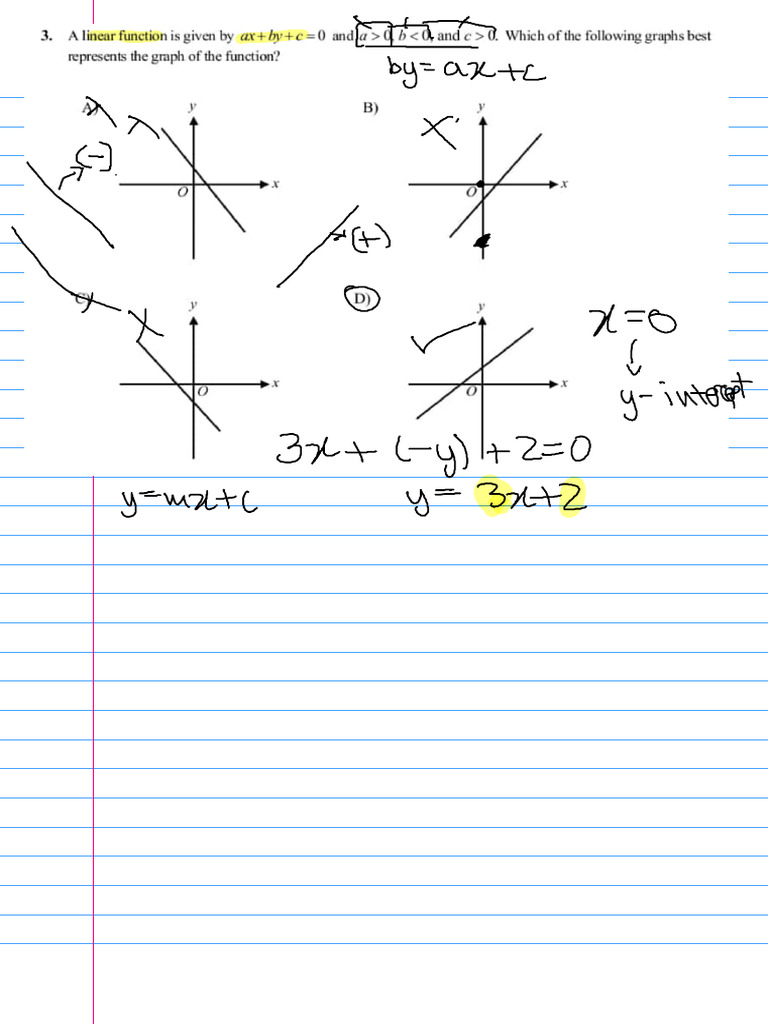 3. A linear function is given by ax + by + c = 0 and a > 0, b < 0, and c > 0. Which of the following graphs best
represents the graph of the function?
by = ax + c
A)
y
x
O
(-)
B)
y
x
O
(+)
C)
y
x
O
D)
y
x
O
x = 0
y - intercept
3x + (-y) + 2 = 0
y = mx + c
y = 3x + 2